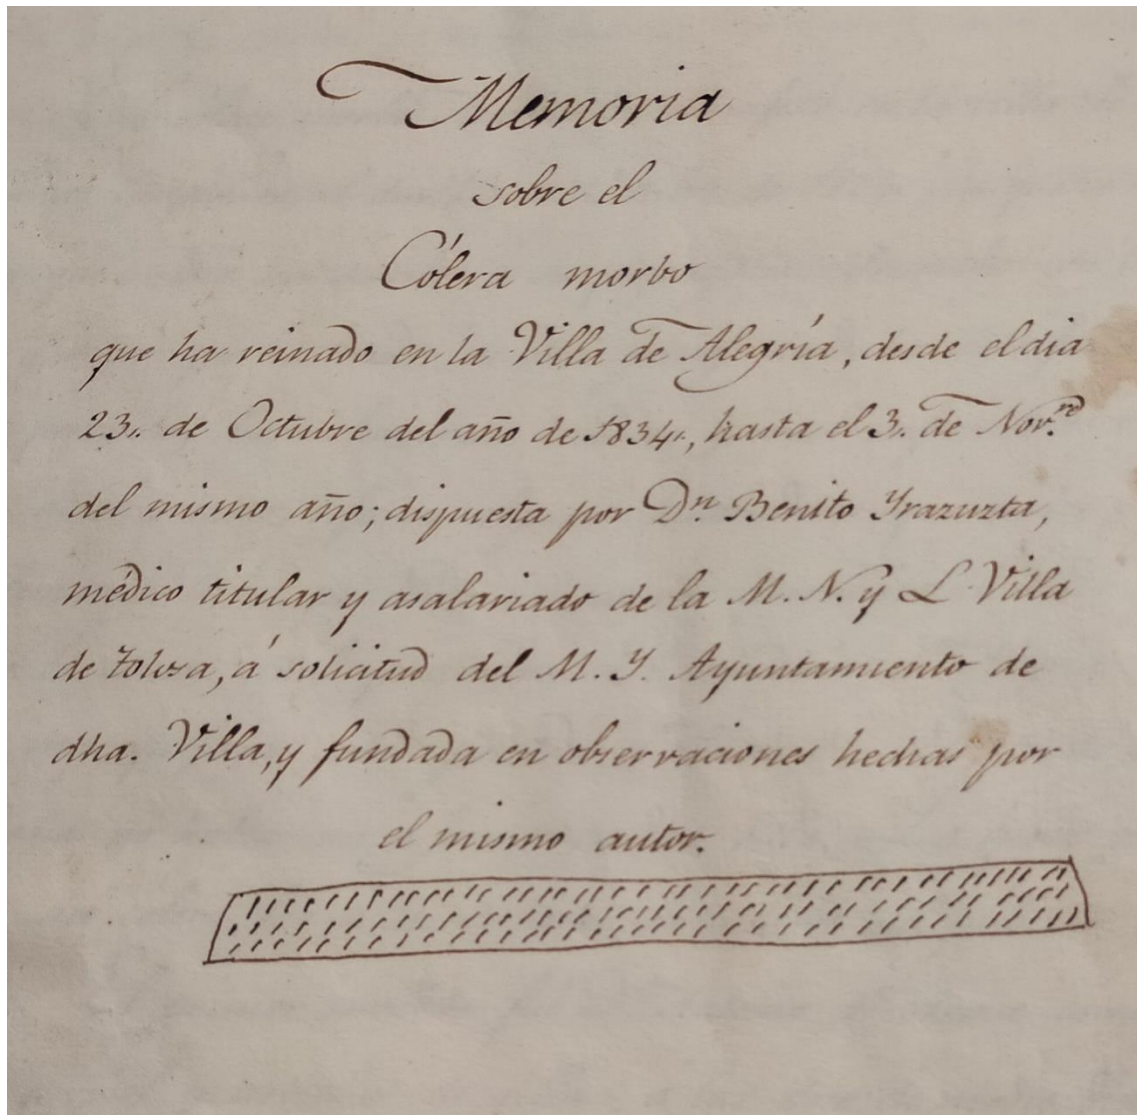 Memoria
sobre el
Cólera morbo
que ha reinado en la Villa de Alegría, desde el dia
23,, de Octubre del año de 1834,,, hasta el 3,, de Nov.re
del mismo año; dispuesta por Dn. Benito Yrazuzta,
médico titular y asalariado de la M. N. y L Villa
de Tolosa, á solicitud del M. Y. Ayuntamiento de
dha. Villa, y fundada en observaciones hechas por
el mismo autor.